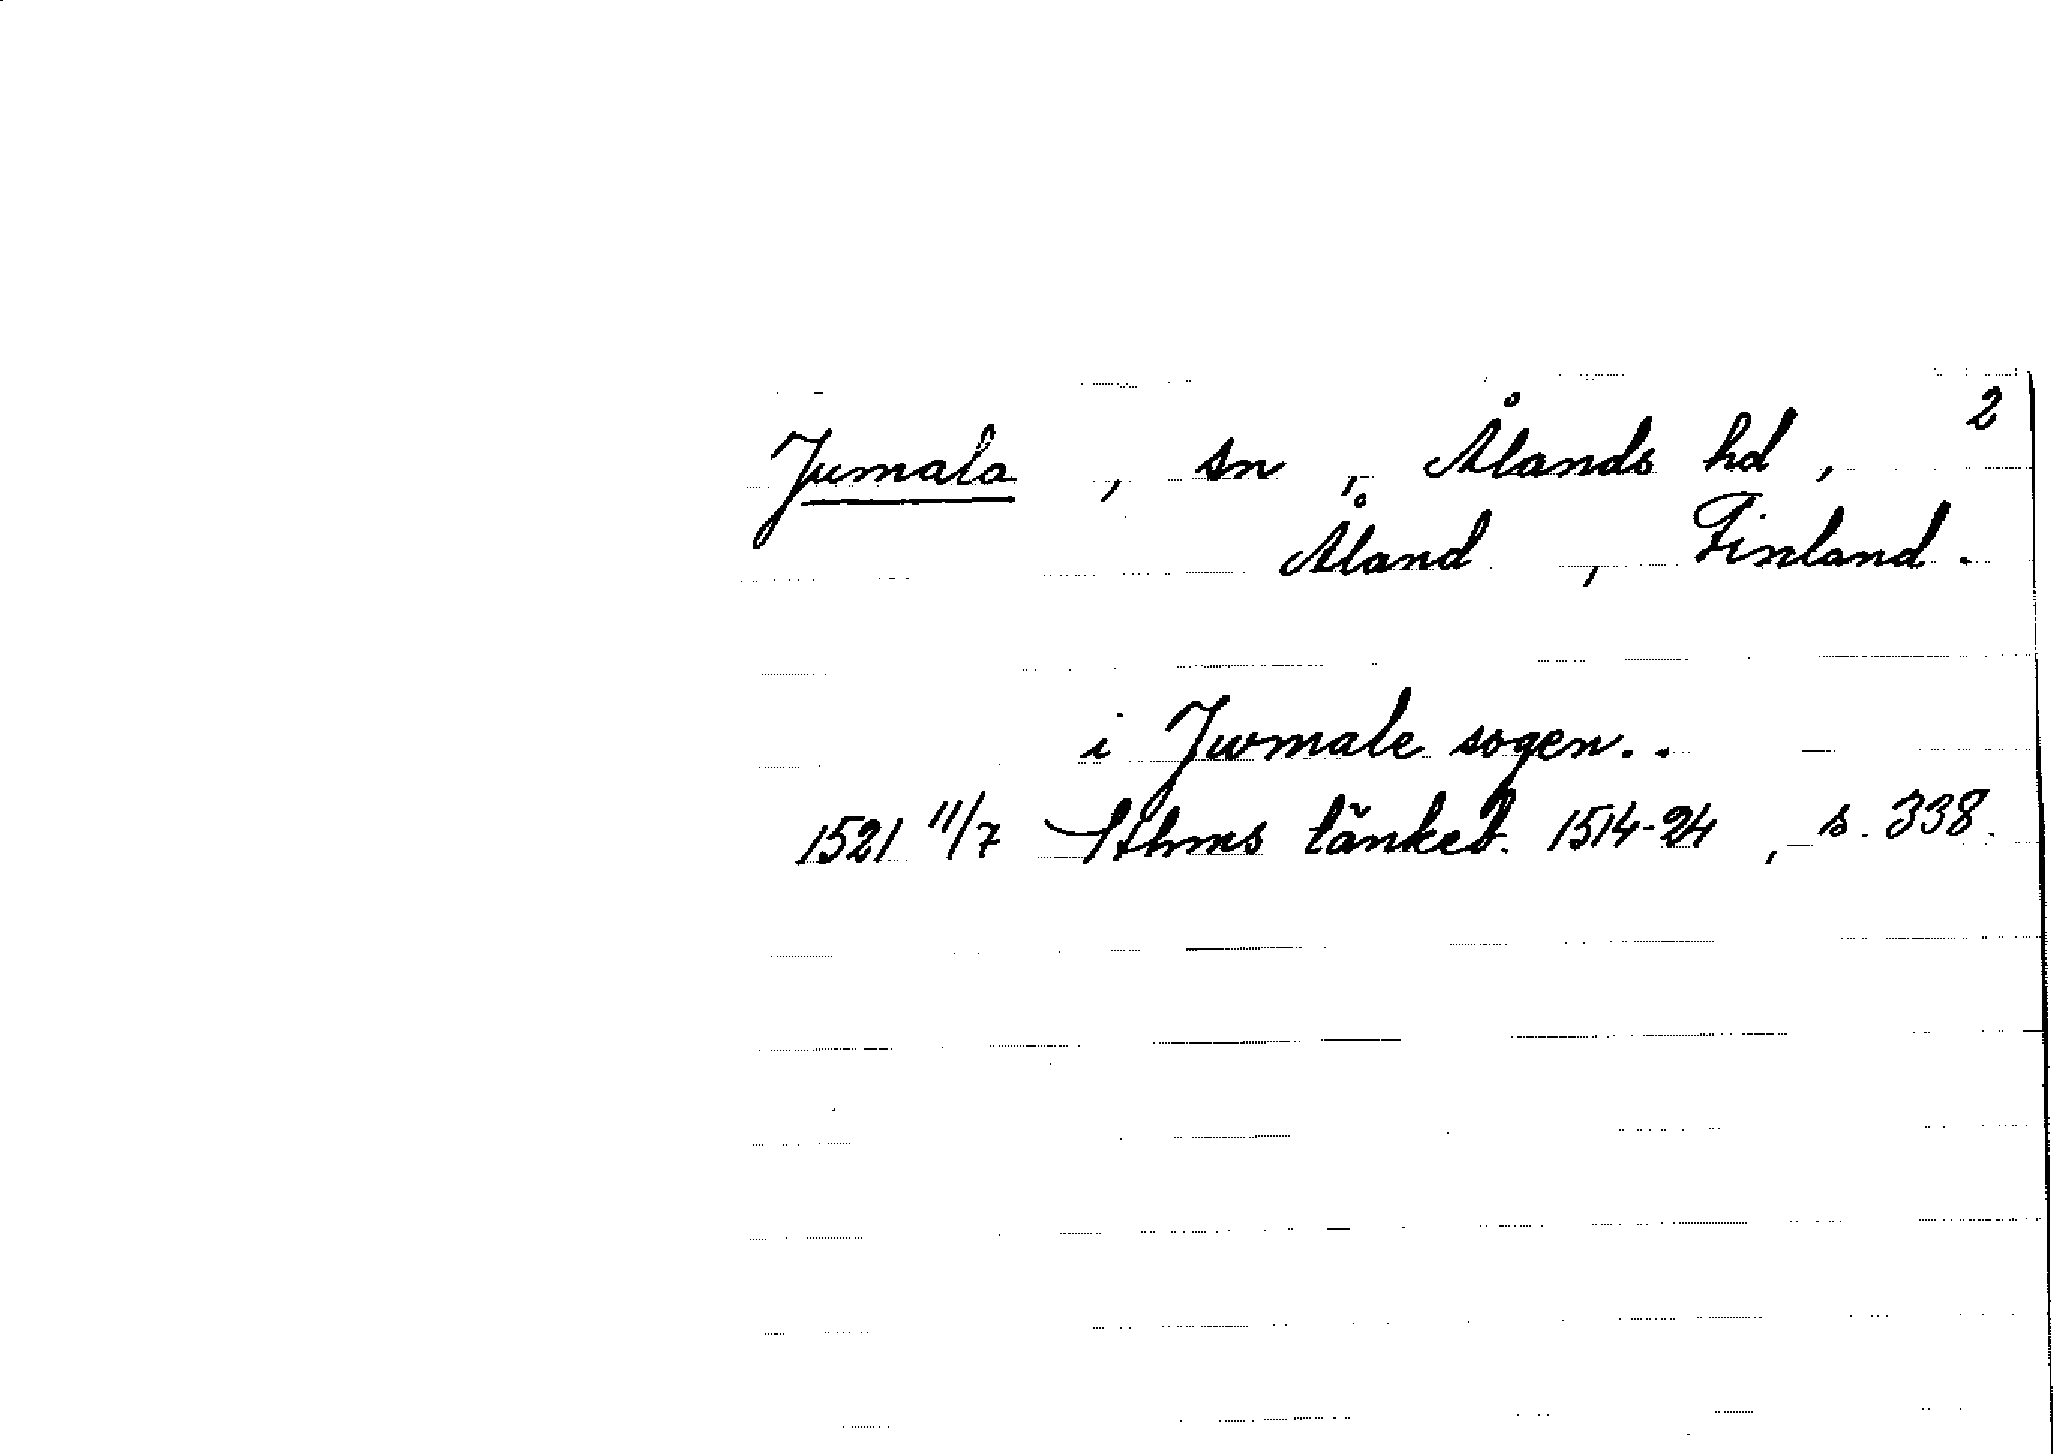 2
Jumala, sn, Ålands hd,
Åland, Finland.
i Jwmale sogen..
1521 11/7 Sthms tänkeb. 1514-24, s. 338.